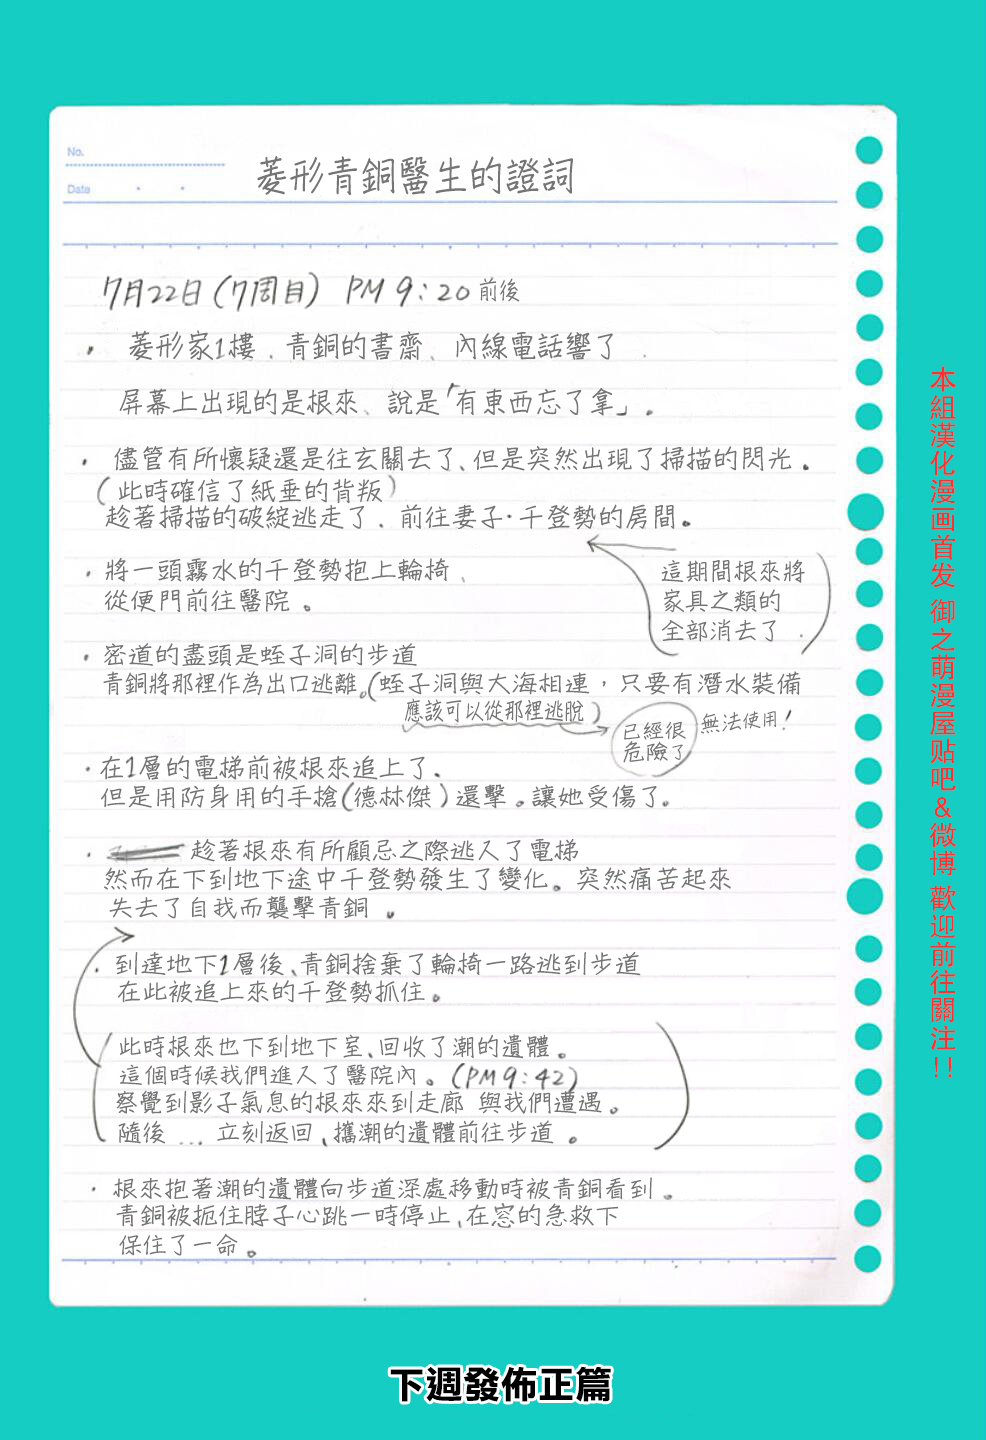 No.
Date
菱形青銅醫生的證詞
7月22日(7周目) PM 9:20前後
・ 菱形家1樓、青銅的書齋、內線電話響了
屏幕上出現的是根來、說是「有東西忘了拿」。
・ 儘管有所懷疑還是往玄關去了、但是突然出現了掃描的閃光。
(此時確信了紙垂的背叛)
趁著掃描的破綻逃走了、前往妻子·千登勢的房間。
・將一頭霧水的千登勢抱上輪椅、
從便門前往醫院。
這期間根來將
家具之類的
全部消去了
・密道的盡頭是蛭子洞的步道
青銅將那裡作為出口逃離。(蛭子洞與大海相連，只要有潛水裝備
應該可以從那裡逃脫)
已經很
危險了
無法使用!
・在1層的電梯前被根來追上了、
但是用防身用的手槍(德林傑)還擊。讓她受傷了。
・ 趁著根來有所顧忌之際逃入了電梯
然而在下到地下途中千登勢發生了變化。突然痛苦起來
失去了自我而襲擊青銅。
・到達地下1層後、青銅捨棄了輪椅一路逃到步道
在此被追上來的千登勢抓住。
(此時根來也下到地下室、回收了潮的遺體。
這個時候我們進入了醫院內。(PM9:42)
察覺到影子氣息的根來來到走廊 與我們遭遇。
隨後...立刻返回、攜潮的遺體前往步道。)
・根來抱著潮的遺體向步道深處移動時被青銅看到。
青銅被扼住脖子心跳一時停止、在窓的急救下
保住了一命。
本組漢化漫画首发 御之萌漫屋贴吧&微博 歡迎前往關注!!
下週發佈正篇